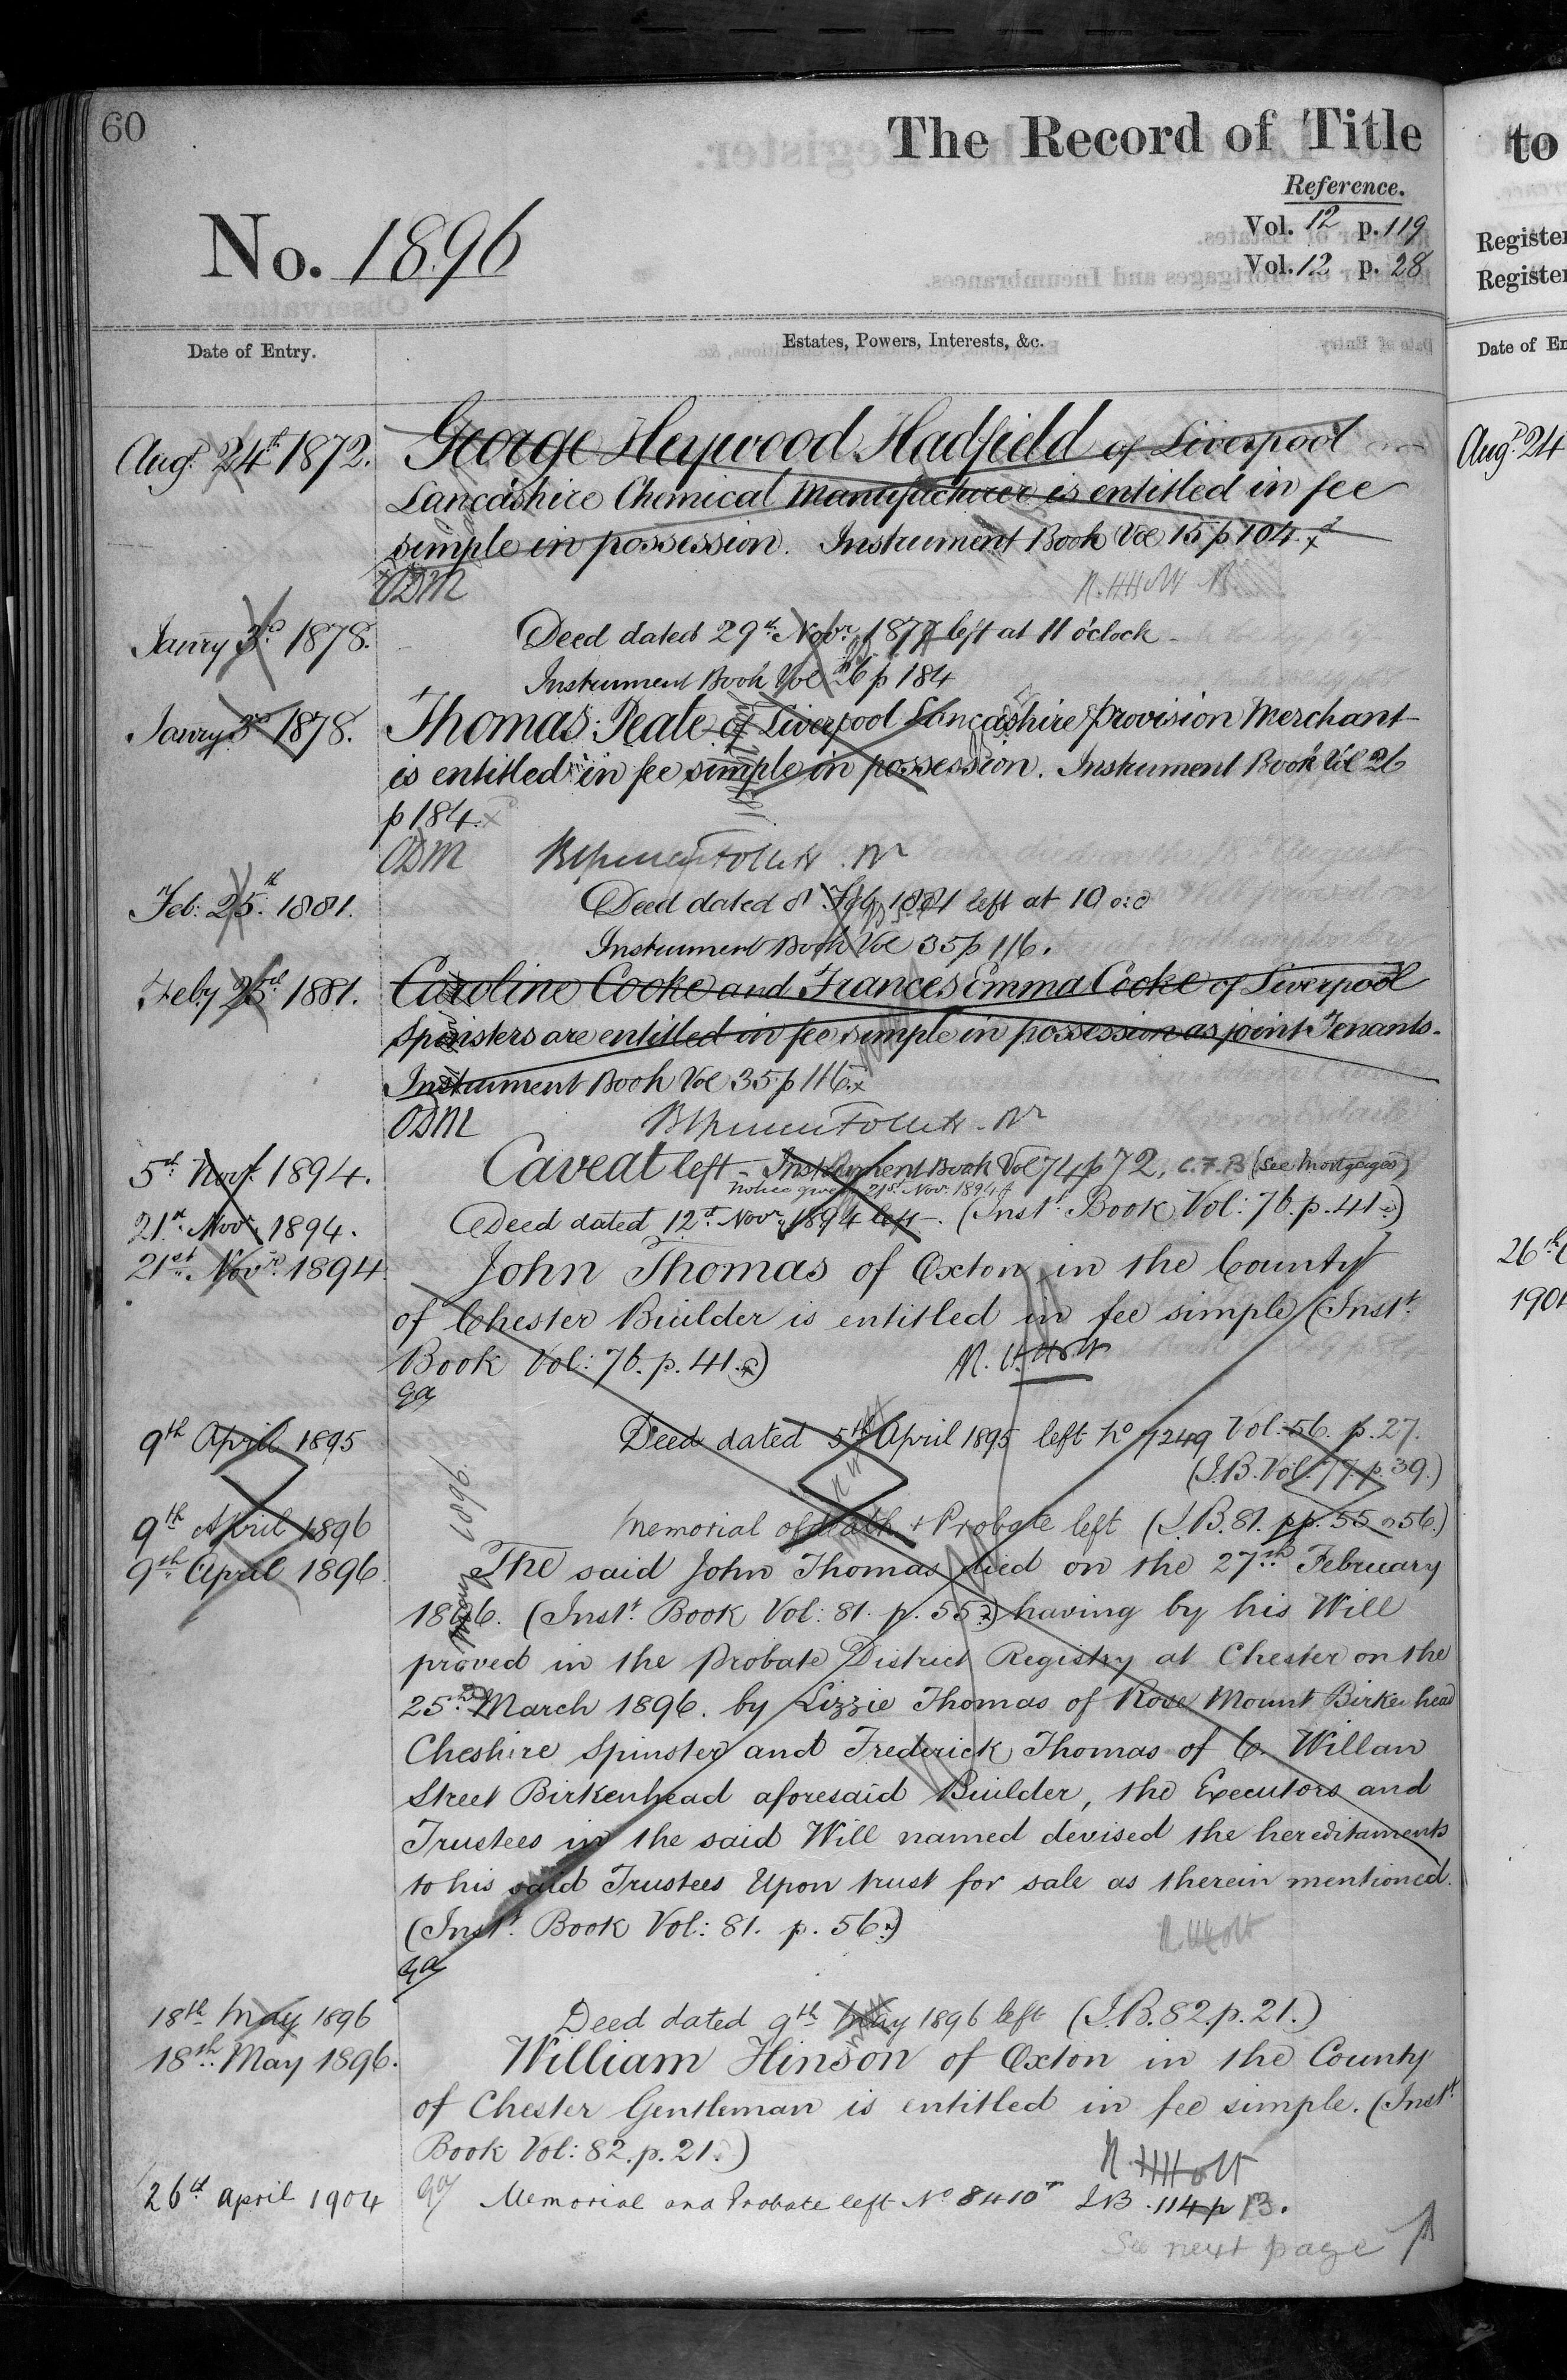 60
The Record of Title
Reference.
No. 1896
Vol. 12 p. 119
Vol. 12 p. 28
Date of Entry.
Estates, Powers, Interests, &c.
Augt 24th 1872. George Heywood Hadfield of Liverpool
Lancashire Chemical Manufacturer is entitled in fee
simple in possession. Instrument Book Vol 15 p 104.
ODM
Janry 3d 1878. Deed dated 29th Novr 1877 left at 11 o'clock
Instrument Book Vol 26 p 184
Janry 3d 1878. Thomas Peate of Liverpool Lancashire Provision Merchant
is entitled in fee simple in possession. Instrument Book Vol 26
p 184.
ODM
Feb: 25th 1881. Deed dated 8 Feby 1881 left at 10 o:c
Instrument Book Vol 35 p 116.
Feby 25th 1881. Caroline Cooke and Frances Emma Cooke of Liverpool
Spinsters are entitled in fee simple in possession as joint Tenants.
Instrument Book Vol 35 p 116.
ODM
5th Novr 1894. Caveat left - Instrument Book Vol 74 p 72. C.F.B (See Mortgages)
Notice given 21st Novr 1894
21st Novr 1894. Deed dated 12th Novr 1894 left - (Instt Book Vol: 76. p. 41.)
21st Novr 1894 John Thomas of Oxton in the County
of Chester Builder is entitled in fee simple (Instt
Book Vol: 76. p. 41.)
N. H. Holt
ga
9th April 1895 Deed dated 5th April 1895 left No 7249 Vol. 56. p. 27.
(I.B. Vol. 77. p. 39.)
9th April 1896 Memorial of death & Probate left (I.B. 81. pp. 55 & 56.)
9th April 1896 The said John Thomas died on the 27th February
1896. (Instt Book Vol: 81. p. 55) having by his Will
proved in the Probate District Registry at Chester on the
25th March 1896. by Lizzie Thomas of Rose Mount Birkenhead
Cheshire Spinster and Frederick Thomas of 6. Willan
Street Birkenhead aforesaid Builder, the Executors and
Trustees in the said Will named devised the hereditaments
to his said Trustees Upon trust for sale as therein mentioned.
(Instt Book Vol: 81. p. 56.)
N. H. Holt
ga
18th May 1896 Deed dated 9th May 1896 left (I.B. 82. p. 21.)
18th May 1896. William Hinson of Oxton in the County
of Chester Gentleman is entitled in fee simple. (Instt
Book Vol: 82. p. 21.)
N. H. Holt
26th April 1904 ga Memorial and Probate left No 8410 I.B. 114 p 13.
See next page
to
Register
Register
Date of En
Augt 24
26th
1904